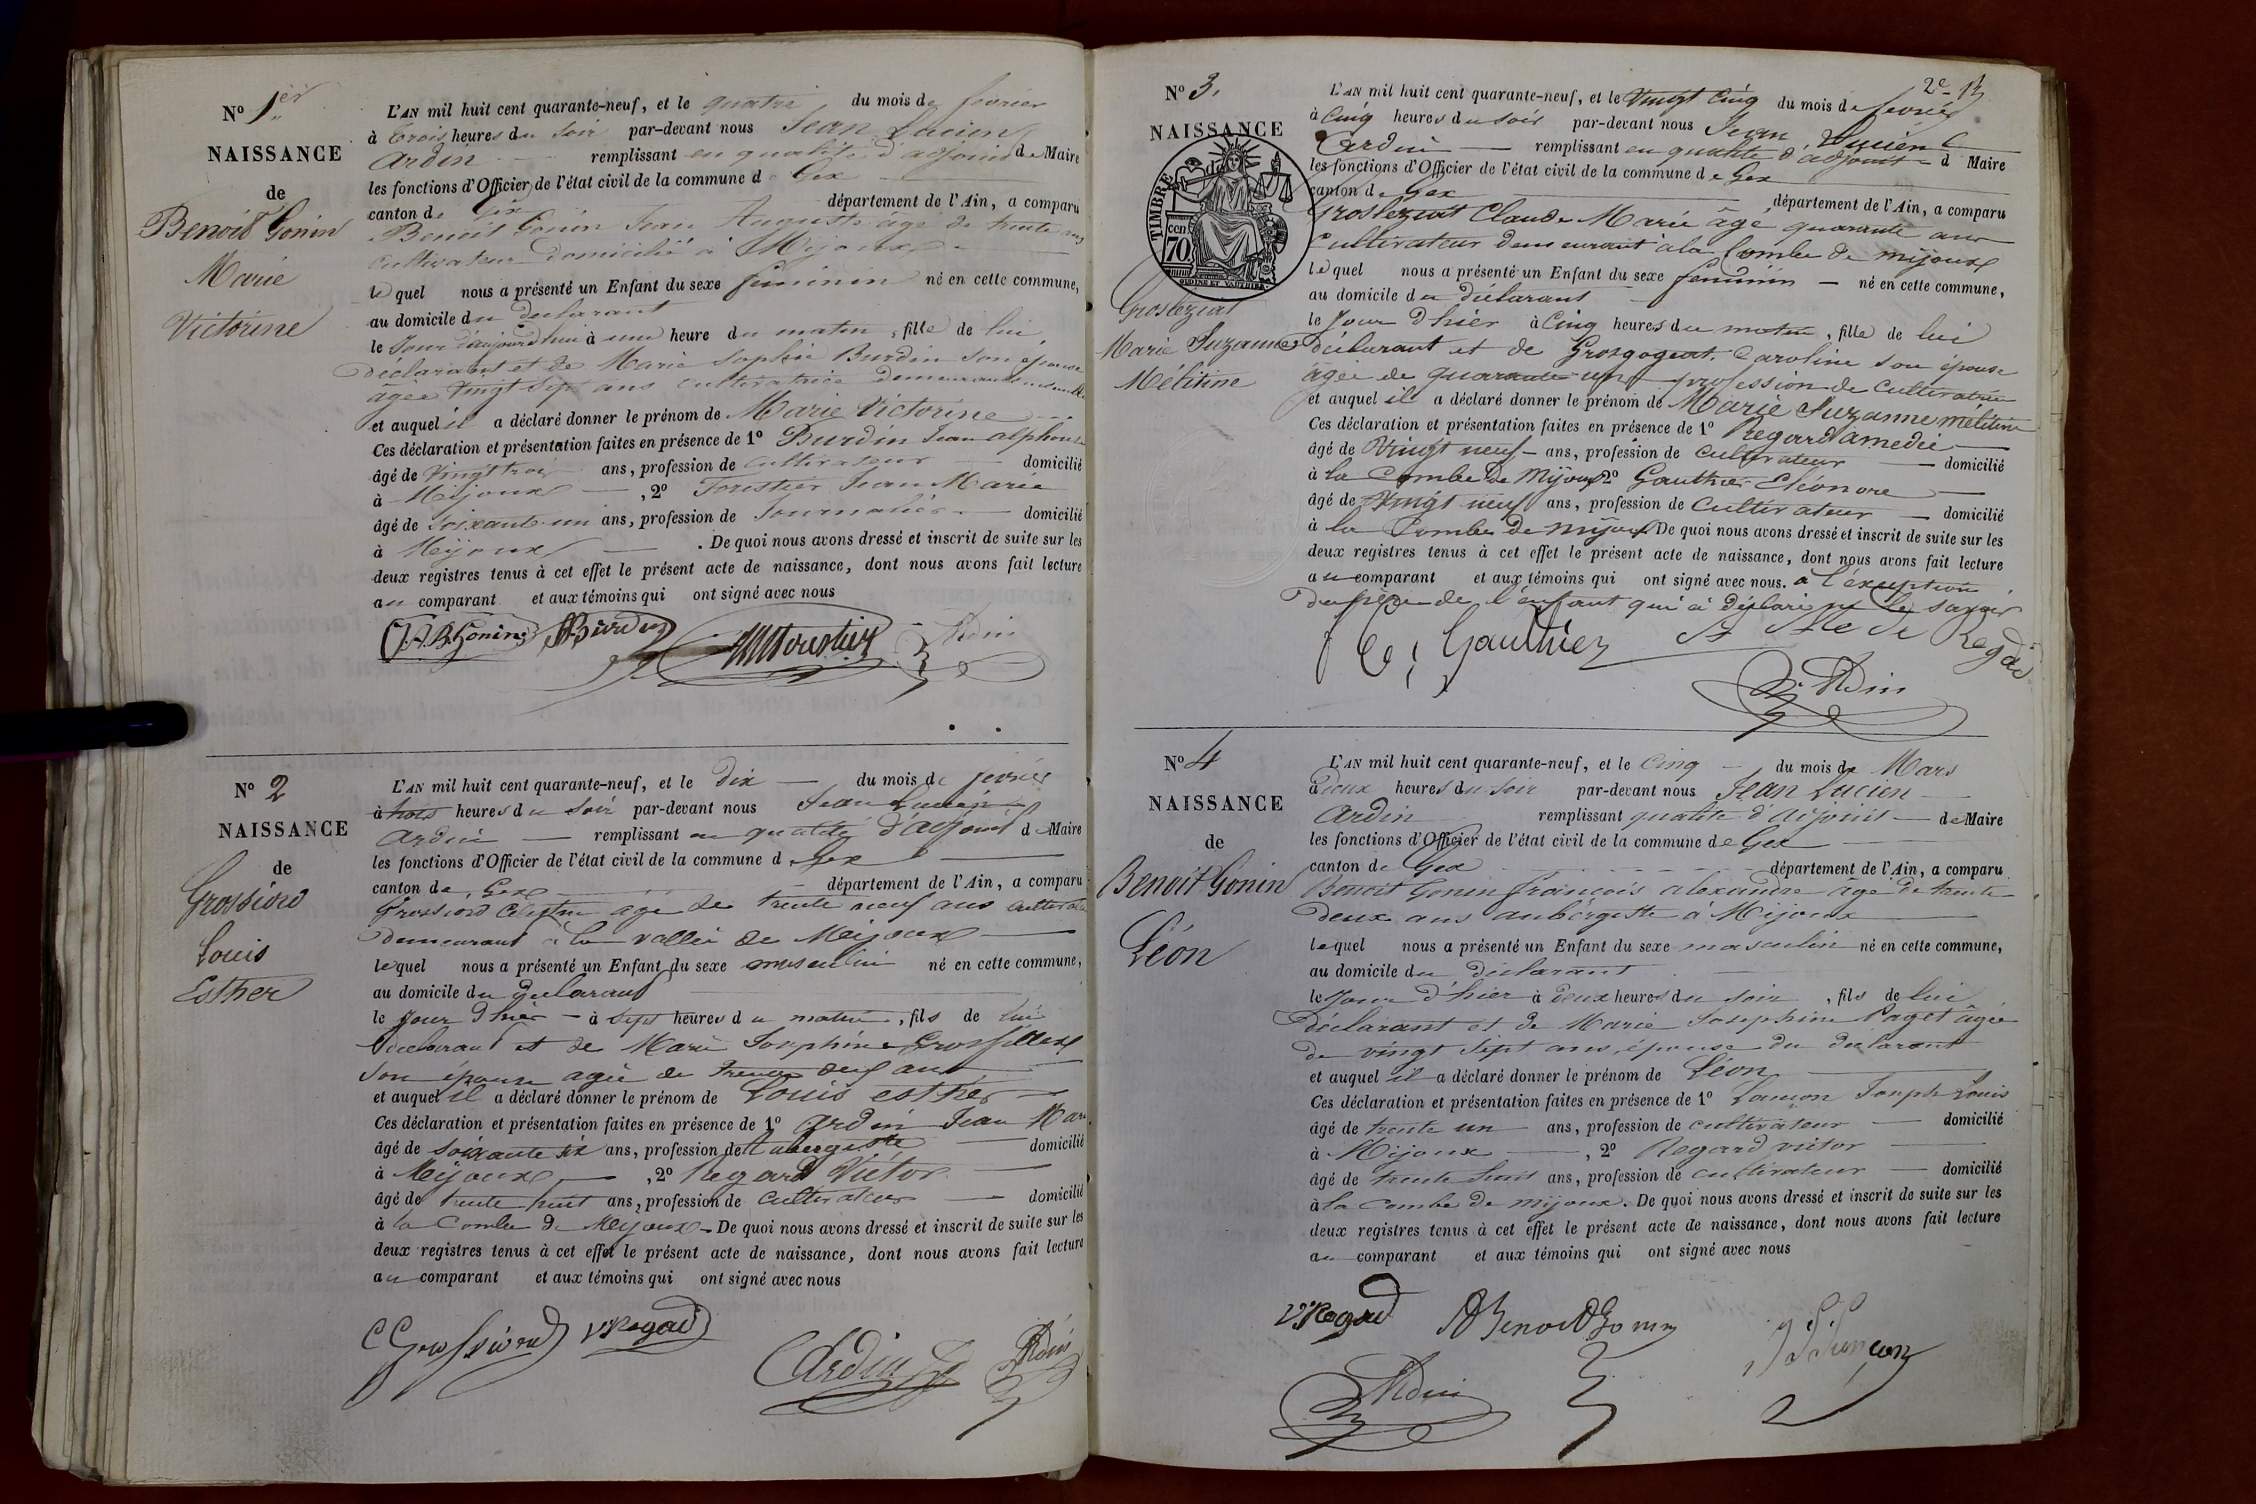 N° 1er
NAISSANCE
de
Benoit Gonin
Marie
Victorine
L'AN mil huit cent quarante-neuf, et le quatre du mois de fevrier
à trois heures du soir par-devant nous Jean Lucien
Ardin remplissant en qualité d'adjoint de Maire
les fonctions d'Officier de l'état civil de la commune d Gex
canton de Gex département de l'Ain, a comparu
Benoit Gonin Jean Auguste âgé de trente
cultivateur domicilié à Mijoux
lequel nous a présenté un Enfant du sexe feminin né en cette commune,
au domicile du declarant
le Jour d'aujourd'hui à une heure du matin, fille de lui
déclarant et de Marie Sophie Burdin son épouse
âgée vingt sept ans cultivatrice demeurant
et auquel il a déclaré donner le prénom de Marie Victorine
Ces déclaration et présentation faites en présence de 1° Burdin Jean alphonse
âgé de vingt trois ans, profession de cultivateur domicilié
à Mijoux, 2° Forestier Jean Marie
âgé de soixante-un ans, profession de Journalier domicilié
à Mijoux. De quoi nous avons dressé et inscrit de suite sur les
deux registres tenus à cet effet le présent acte de naissance, dont nous avons fait lecture
au comparant et aux témoins qui ont signé avec nous
J. A. B. Gonin Burdin Forestier Ardin
N° 2
NAISSANCE
de
Grossiord
Louis
Esther
L'AN mil huit cent quarante-neuf, et le dix du mois de fevrier
à trois heures du soir par-devant nous Jean Lucien
Ardin remplissant en qualité d'adjoint de Maire
les fonctions d'Officier de l'état civil de la commune d Gex
canton de Gex département de l'Ain, a comparu
Grossiord Celestin age de trente neuf ans
demeurant à la vallée de Mijoux
lequel nous a présenté un Enfant du sexe masculin né en cette commune,
au domicile du declarant
le Jour d'hier à sept heures du matin, fils de lui
declarant et de Marie Josephine Grosfillex
son épouse agée de trente neuf ans
et auquel il a déclaré donner le prénom de Louis esther
Ces déclaration et présentation faites en présence de 1° Ardin Jean Marie
âgé de soixante six ans, profession de Aubergiste domicilié
à Mijoux, 2° Regard Victor
âgé de trente huit ans, profession de cultivateur domicilié
à la Combe de Mijoux. De quoi nous avons dressé et inscrit de suite sur les
deux registres tenus à cet effet le présent acte de naissance, dont nous avons fait lecture
au comparant et aux témoins qui ont signé avec nous
C Grossiord V Regard
Ardin Ardin
2e
N° 3.
NAISSANCE
de
TIMBRE
70 cen
Groslezíat
Marie Suzanne
Mélitine
L'AN mil huit cent quarante-neuf, et le Vingt Cinq du mois de fevrier
à Cinq heures du soir par-devant nous Jean Lucien
Ardin remplissant en qualité d'adjoint d Maire
les fonctions d'Officier de l'état civil de la commune de Gex
canton de Gex département de l'Ain, a comparu
Groslezíat Claude Marie âgé quarante ans
Cultivateur demeurant à la Combe de mijoux
lequel nous a présenté un Enfant du sexe feminin né en cette commune,
au domicile du déclarant
le Jour d'hier à Cinq heures du matin, fille de lui
déclarant et de Grosgogeat Caroline son épouse
âgée de quarante un profession de Cultivatrice
et auquel il a déclaré donner le prénom de Marie Suzanne mélitine
Ces déclaration et présentation faites en présence de 1° Regard amedée
âgé de Vingt neuf ans, profession de Cultivateur domicilié
à la Combe de Mijoux 2° Gauthier Eléonore
âgé de Vingt neuf ans, profession de Cultivateur domicilié
à la Combe de mijoux De quoi nous avons dressé et inscrit de suite sur les
deux registres tenus à cet effet le présent acte de naissance, dont nous avons fait lecture
au comparant et aux témoins qui ont signé avec nous. à l'éxception
du père de l'enfant qui a déclaré ne le savoir
E. Gauthier
Ardin
N° 4
NAISSANCE
de
Benoit Gonin
Léon
L'AN mil huit cent quarante-neuf, et le Cinq du mois de Mars
à deux heures du soir par-devant nous Jean Lucien
Ardin remplissant qualité d'adjoint de Maire
les fonctions d'Officier de l'état civil de la commune de Gex
canton de Gex département de l'Ain, a comparu
Benoit Gonin françois alexandre âgé de trente
deux ans aubergiste à Mijoux
lequel nous a présenté un Enfant du sexe masculin né en cette commune,
au domicile du déclarant
le Jour d'hier à deux heures du soir, fils de lui
déclarant et de Marie Josephine Paget âgée
de vingt sept ans, épouse du declarant
et auquel il a déclaré donner le prénom de Léon
Ces déclaration et présentation faites en présence de 1° Lançon Joseph Louis
âgé de trente un ans, profession de cultivateur domicilié
à Mijoux, 2° Regard victor
âgé de trente huit ans, profession de cultivateur domicilié
à la combe de mijoux. De quoi nous avons dressé et inscrit de suite sur les
deux registres tenus à cet effet le présent acte de naissance, dont nous avons fait lecture
au comparant et aux témoins qui ont signé avec nous
V Regard A Benoit Gonin J L Lançon
Ardin